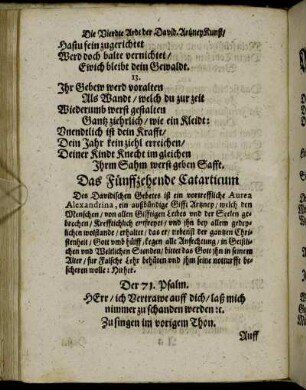 Die Vierdte Ardt der David. Artzney Kunst/
Hastu fein zugerichtet/
Werd doch balte vernichtet/
Ewich bleibt dein Gewaldt.
13.
Ihr Gebew werd voralten
Als Wandt/ welch du zur zeit
Wiederumb werst gestalten
Gantz ziehrlich/ wie ein Kleidt:
Vnendlich ist dein Krafft/
Dein Jahr kein ziehl erreichen/
Deiner Kindt Knecht imgleichen
Ihrm Sahm werst geben Safft.
Das Fünffzehende Catarticum
Des Davidischen Gebetes ist ein vortreffliche Aurea
Alexandrina, ein außbündige Gifft Artzney/ welch den
Menschen/ von allen Gifftigen Leibes vnd der Seelen ge-
brechen/ Krefftichlich und ihn bey allem gedey-
lichen wolstande/ erhaltet: das er/ nebenst der gantzen Chri-
stenheit/ Gott vmb hülff/ gegen alle Anfechtung/ in Geistli-
chen vnd Weltlichen Stenden/ bittet das Gott ihn in seinem
Alter/ für Falsche Lehr behüten vnd ihm seine notturfft be-
scheren wolle: Hieher.
Der 71. Psalm.
HErr/ ich Vertrawe auff dich/ laß mich
nimmer zu schanden werden ꝛc.
Zu singen im vorigem Thon.
Auff